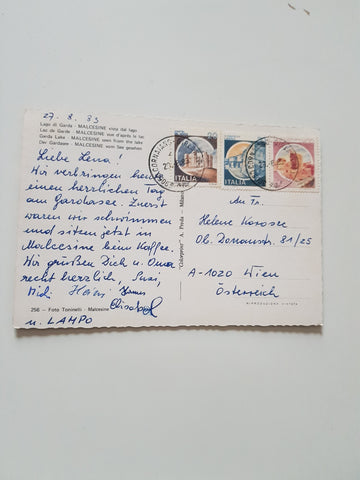 27.8.83
Lago di Garda - MALCESINE vista dal lago
Lac de Garde - MALCESINE vue d'après le lac
Garda Lake - MALCESINE seen from the lake
Der Gardasee - MALCESINE vom See gesehen
Liebe Lena!
Wir verbringen heute
einen herrlichen Tag
am Gardasee. Zuerst
waren wir schwimmen
und sitzen jetzt in
Malcesine beim Kaffee.
Wir grüßen Dich u. Oma
recht herzlich, Susi,
Heini
256 - Foto Toninelli - Malcesine
u. LAMPO
ITALIA
ITALIA
ITALIA
An Fr.
Helene
Ob. Donaustr. 81/25
A-1020 Wien
Österreich
RIPRODUZIONE VIETATA